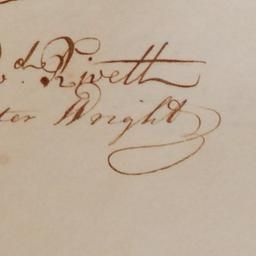 d. Rivett
ter Wright